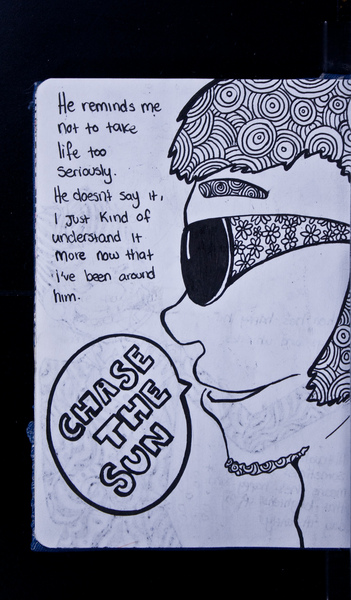 He reminds me
not to take
life too
Seriously.
He doesn't say it,
I just kind of
understand it
more now that
i've been around
him.
CHASE
THE
SUN